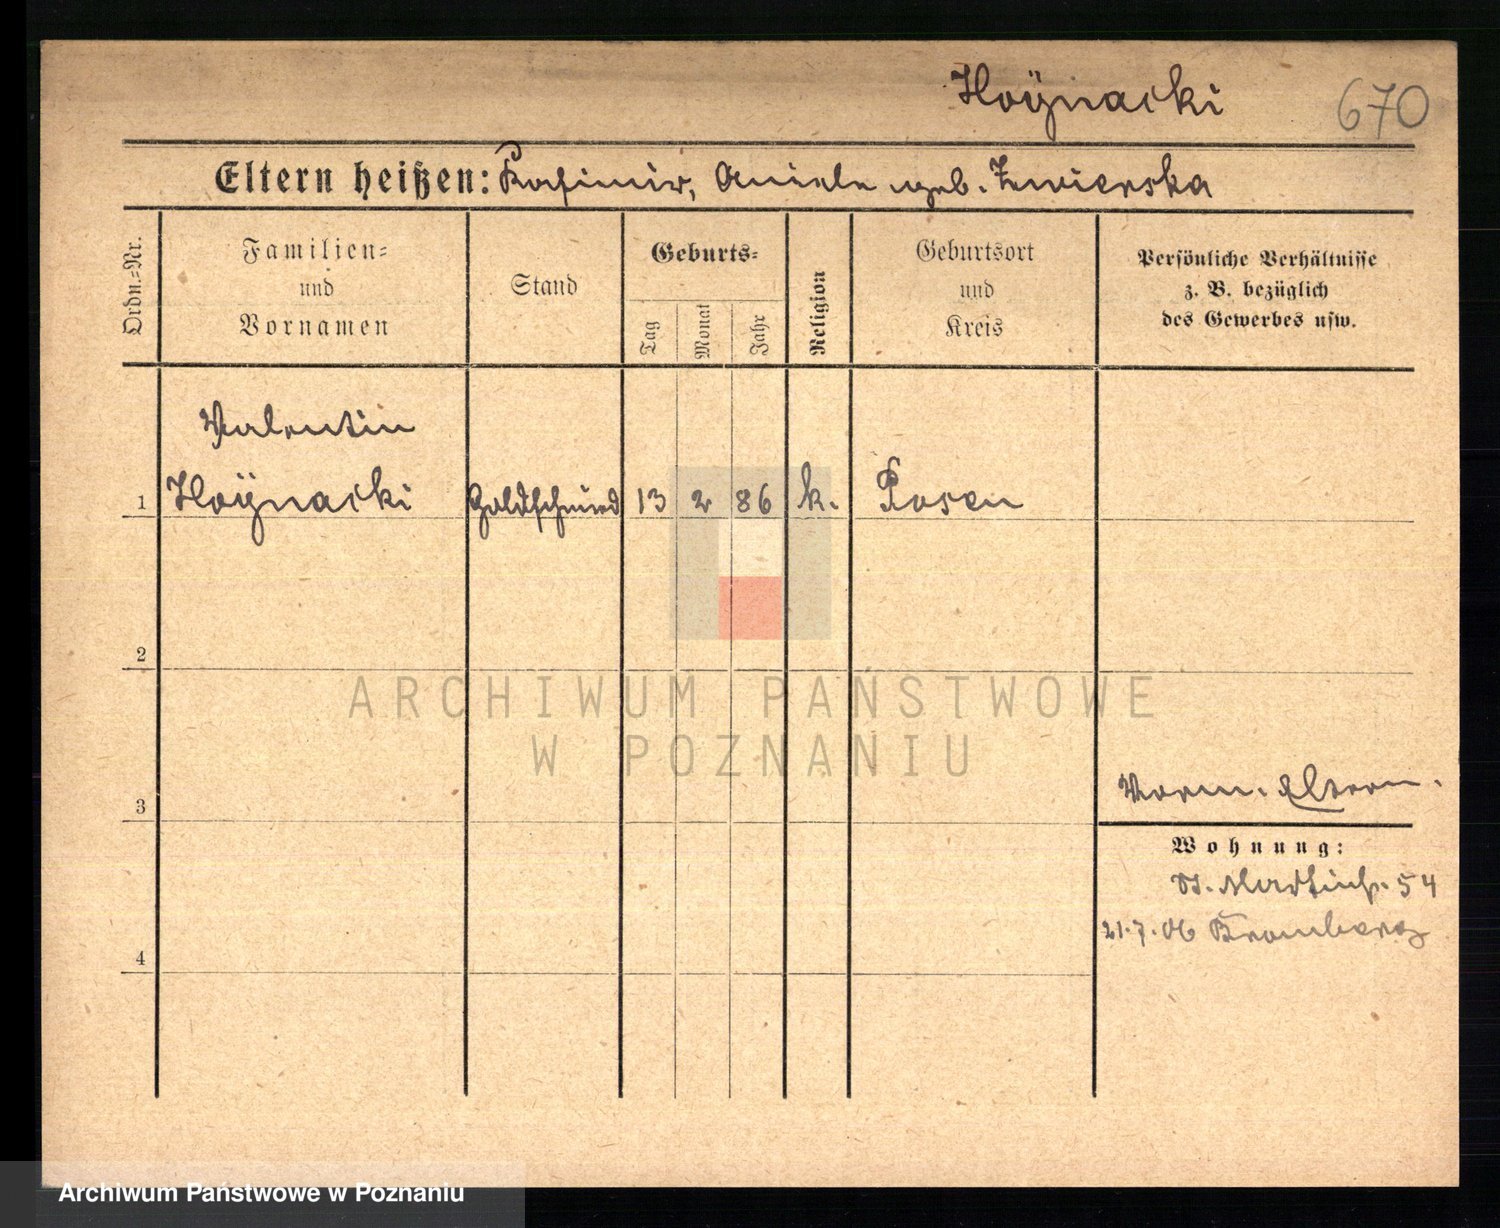 Hoÿnacki 670
Eltern heißen: Kasimir, Aniela geb. Zwierska
Ordn.-Nr.
Familien-
und
Vornamen
Stand
Geburts-
Tag
Monat
Jahr
Religion
Geburtsort
und
Kreis
Persönliche Verhältnisse
z. B. bezüglich
des Gewerbes usw.
Valentin
1 Hoÿnacki Goldschmied 13 2 86 k. Posen
2
3
Vorm. Eltern.
Wohnung:
St. Martinstr. 54
21.7.06 Bromberg
4
ARCHIWUM PAŃSTWOWE
W POZNANIU
Archiwum Państwowe w Poznaniu